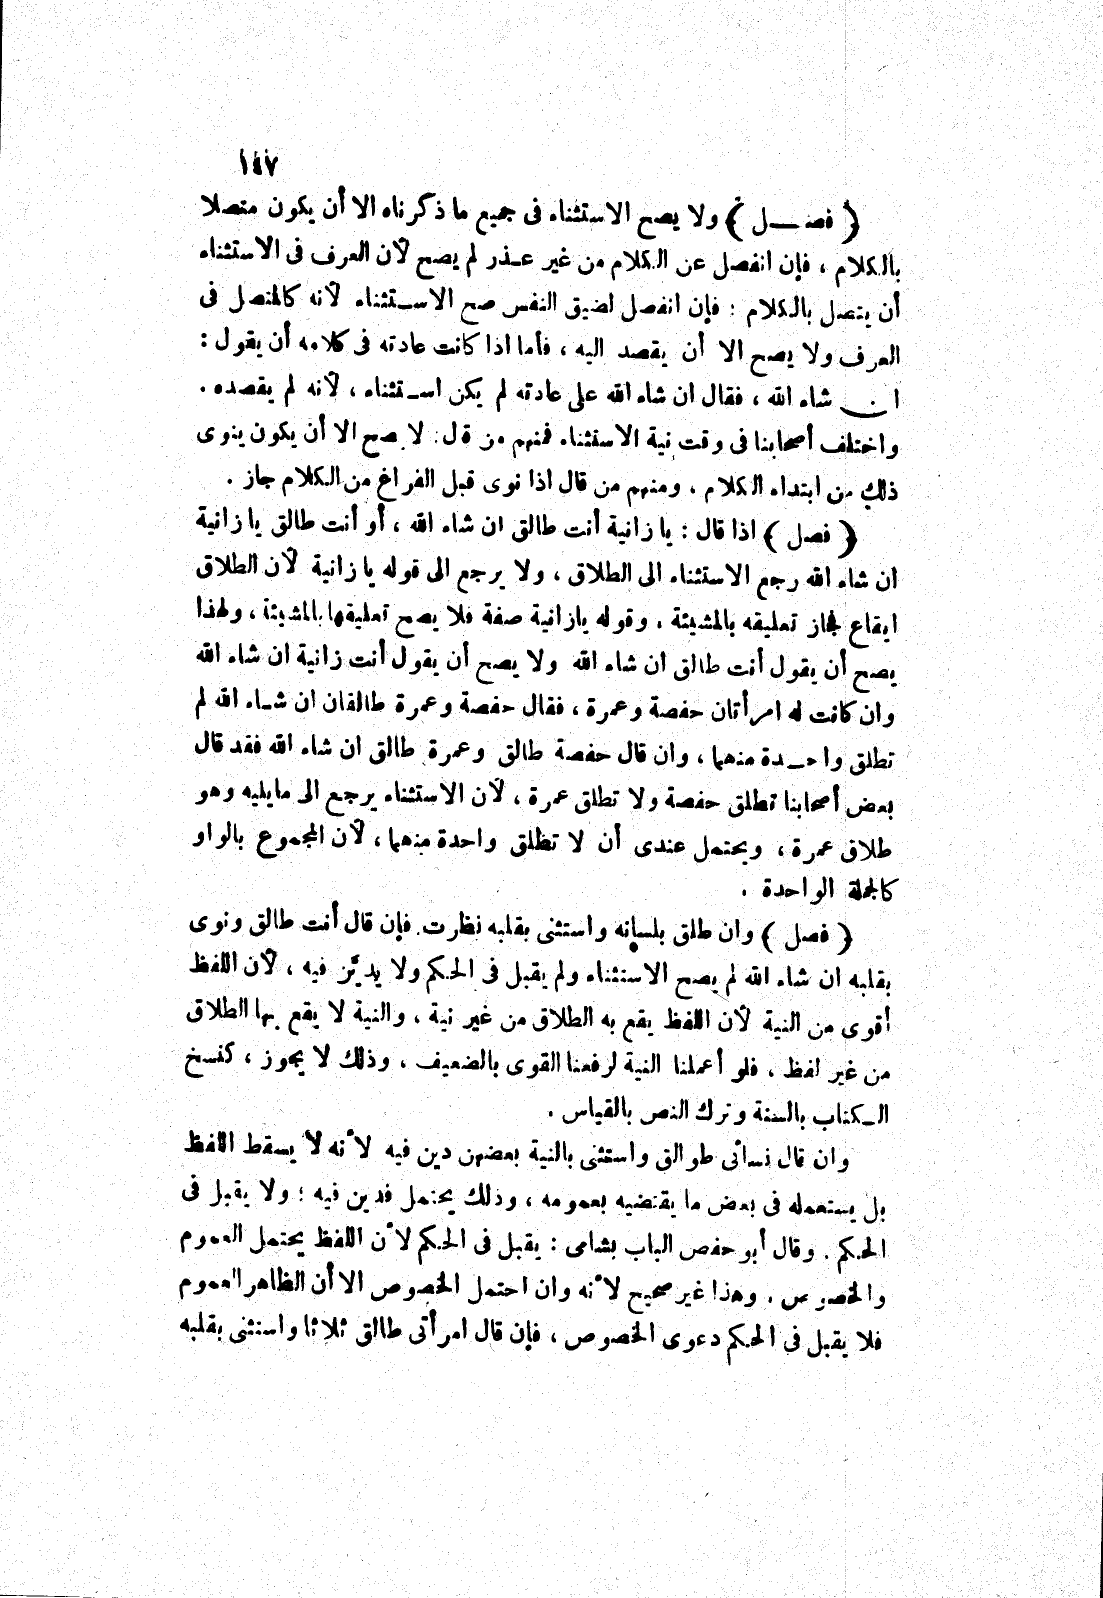 ١٤٧
﴿ فصل ﴾ ولا يصح الاستثناء فى جميع ما ذكرناه الا أن يكون متصلا
بالكلام ، فإن انفصل عن الكلام من غير عذر لم يصح لأن العرف فى الاستثناء
أن يتصل بالكلام : فإن انفصل لضيق النفس صح الاستثناء لأنه كالمتصل فى
العرف ولا يصح الا أن يقصد اليه ، فأما اذا كانت عادته فى كلامه أن يقول :
ان شاء الله ، فقال ان شاء الله على عادته لم يكن استثناء ، لأنه لم يقصده .
واختلف أصحابنا فى وقت نية الاستثناء فمنهم من قال : لا يصح الا أن يكون ينوى
ذلك من ابتداء الكلام ، ومنهم من قال اذا نوى قبل الفراغ من الكلام جاز .
﴿ فصل ﴾ اذا قال : يا زانية أنت طالق ان شاء الله ، أو أنت طالق يا زانية
ان شاء الله رجع الاستثناء الى الطلاق ، ولا يرجع الى قوله يا زانية لأن الطلاق
ايقاع فجاز تعليقه بالمشيئة ، وقوله يازانية صفة فلا يصح تعليقها بالمشيئة ، ولهذا
يصح أن يقول أنت طالق ان شاء الله ولا يصح أن يقول أنت زانية ان شاء الله
وان كانت له امرأتان حفصة وعمرة ، فقال حفصة وعمرة طالقان ان شاء الله لم
تطلق واحدة منهما ، وان قال حفصة طالق وعمرة طالق ان شاء الله فقد قال
بعض أصحابنا تطلق حفصة ولا تطلق عمرة ، لأن الاستثناء يرجع الى مايليه وهو
طلاق عمرة ، ويحتمل عندى أن لا تطلق واحدة منهما ، لأن المجموع بالواو
كالجملة الواحدة .
﴿ فصل ﴾ وان طلق بلسانه واستثنى بقلبه نظرت فإن قال أنت طالق ونوى
بقلبه ان شاء الله لم يصح الاستثناء ولم يقبل فى الحكم ولا يديّن فيه ، لأن اللفظ
أقوى من النية لأن اللفظ يقع به الطلاق من غير نية ، والنية لا يقع بها الطلاق
من غير لفظ ، فلو أعملنا النية لرفعنا القوى بالضعيف ، وذلك لا يجوز ، كنسخ
الكتاب بالسنة وترك النص بالقياس .
وان قال نسائى طوالق واستثنى بالنية بعضهن دين فيه لأنه لا يسقط اللفظ
بل يستعمله فى بعض ما يقتضيه بعمومه ، وذلك يحتمل فدين فيه : ولا يقبل فى
الحكم . وقال أبو حفص الباب بشامى : يقبل فى الحكم لأن اللفظ يحتمل العموم
والخصوص . وهذا غير صحيح لأنه وان احتمل الخصوص الا أن الظاهر العموم
فلا يقبل فى الحكم دعوى الخصوص ، فإن قال امرأتى طالق ثلاثا واستثنى بقلبه